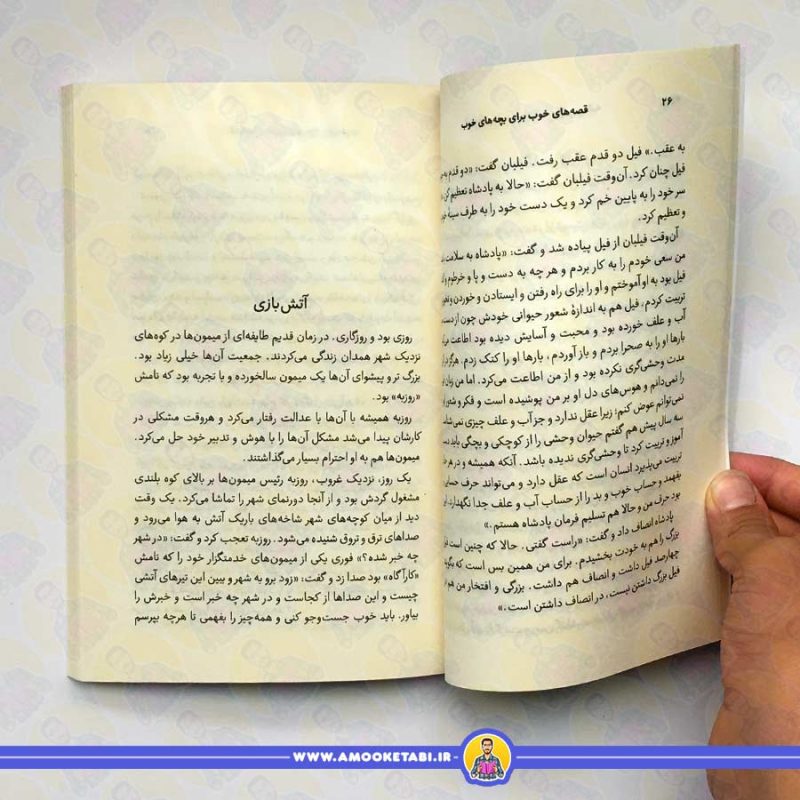 ۲۶
قصه‌های خوب برای بچه‌های خوب
به عقب.» فیل دو قدم عقب رفت. فیلبان گفت: «دو قدم به
فیل چنان کرد. آن‌وقت فیلبان گفت: «حالا به پادشاه تعظیم کن
سر خود را به پایین خم کرد و یک دست خود را به طرف سینهٔ
و تعظیم کرد.
آن‌وقت فیلبان از فیل پیاده شد و گفت: «پادشاه به سلامت
من سعی خودم را به کار بردم و هر چه به دست و پا و خرطوم و
فیل بود به او آموختم و او را برای راه رفتن و ایستادن و خوردن و
تربیت کردم، فیل هم به اندازهٔ شعور حیوانی خودش چون از دست
آب و علف خورده بود و محبت و آسایش دیده بود اطاعت
بارها او را به صحرا بردم و باز آوردم، بارها او را کتک زدم. هرگز در
مدت وحشی‌گری نکرده بود و از من اطاعت می‌کرد. اما من
را نمی‌دانم و هوس‌های دل او بر من پوشیده است و فکر و
نمی‌توانم عوض کنم؛ زیرا عقل ندارد و جز آب و علف چیزی
سه سال پیش هم گفتم حیوان وحشی را از کوچکی و بچگی باید
آموز و تربیت کرد تا وحشی‌گری ندیده باشد. آنکه همیشه و در هر
تربیت می‌پذیرد انسان است که عقل دارد و می‌تواند حرف
بفهمد و حساب خوب و بد را از حساب آب و علف جدا نگهدارد.
بود حرف من و حالا هم تسلیم فرمان پادشاه هستم.»
پادشاه انصاف داد و گفت: «راست گفتی. حالا که چنین است
بزرگ را هم به خودت بخشیدم. برای من همین بس است که
چهارصد فیل داشت و انصاف هم داشت. بزرگی و افتخار من هم
فیل بزرگ داشتن نیست، در انصاف داشتن است.»
آتش‌بازی
روزی بود و روزگاری. در زمان قدیم طایفه‌ای از میمون‌ها در کوه‌های
نزدیک شهر همدان زندگی می‌کردند. جمعیت آن‌ها خیلی زیاد بود.
بزرگ تر و پیشوای آن‌ها یک میمون سالخورده و با تجربه بود که نامش
«روزبه» بود.
روزبه همیشه با آن‌ها با عدالت رفتار می‌کرد و هروقت مشکلی در
کارشان پیدا می‌شد مشکل آن‌ها را با هوش و تدبیر خود حل می‌کرد.
میمون‌ها هم به او احترام بسیار می‌گذاشتند.
یک روز، نزدیک غروب، روزبه رئیس میمون‌ها بر بالای کوه بلندی
مشغول گردش بود و از آنجا دورنمای شهر را تماشا می‌کرد. یک وقت
دید از میان کوچه‌های شهر شاخه‌های باریک آتش به هوا می‌رود و
صداهای ترق و تروق شنیده می‌شود. روزبه تعجب کرد و گفت: «در شهر
چه خبر شده؟» فوری یکی از میمون‌های خدمتگزار خود را که نامش
«کارآگاه» بود صدا زد و گفت: «زود برو به شهر و ببین این تیرهای آتشی
چیست و این صداها از کجاست و در شهر چه خبر است و خبرش را
بیاور. باید خوب جست‌وجو کنی و همه‌چیز را بفهمی تا هرچه بپرسم
WWW.AMOOKETABI.IR